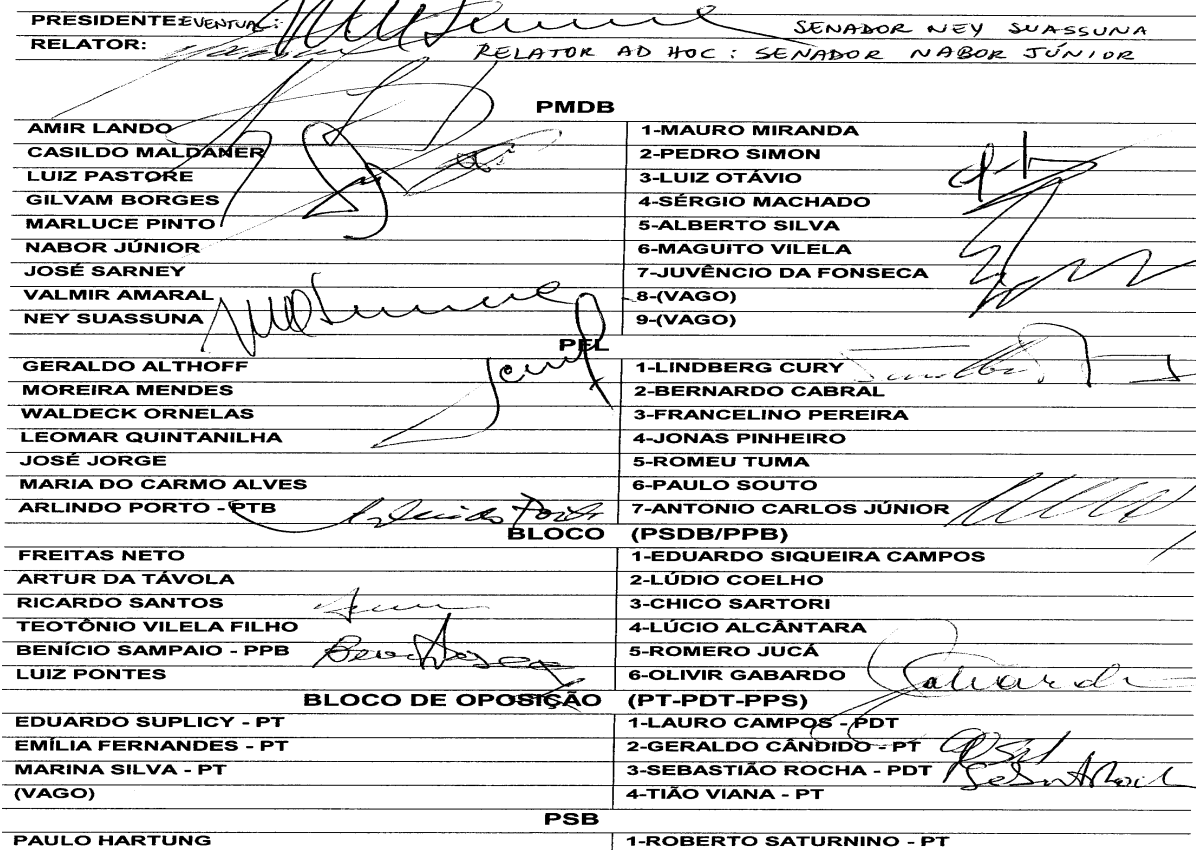 PRESIDENTE EVENTUAL: SENADOR NEY SUASSUNA
RELATOR: RELATOR AD HOC: SENADOR NABOR JÚNIOR
PMDB
AMIR LANDO 1-MAURO MIRANDA
CASILDO MALDANER 2-PEDRO SIMON
LUIZ PASTORE 3-LUIZ OTÁVIO
GILVAM BORGES 4-SÉRGIO MACHADO
MARLUCE PINTO 5-ALBERTO SILVA
NABOR JÚNIOR 6-MAGUITO VILELA
JOSÉ SARNEY 7-JUVÊNCIO DA FONSECA
VALMIR AMARAL 8-(VAGO)
NEY SUASSUNA 9-(VAGO)
PFL
GERALDO ALTHOFF 1-LINDBERG CURY
MOREIRA MENDES 2-BERNARDO CABRAL
WALDECK ORNELAS 3-FRANCELINO PEREIRA
LEOMAR QUINTANILHA 4-JONAS PINHEIRO
JOSÉ JORGE 5-ROMEU TUMA
MARIA DO CARMO ALVES 6-PAULO SOUTO
ARLINDO PORTO - PTB Arlindo Porto 7-ANTONIO CARLOS JÚNIOR
BLOCO (PSDB/PPB)
FREITAS NETO 1-EDUARDO SIQUEIRA CAMPOS
ARTUR DA TÁVOLA 2-LÚDIO COELHO
RICARDO SANTOS 3-CHICO SARTORI
TEOTÔNIO VILELA FILHO 4-LÚCIO ALCÂNTARA
BENÍCIO SAMPAIO - PPB 5-ROMERO JUCÁ
LUIZ PONTES 6-OLIVIR GABARDO
BLOCO DE OPOSIÇÃO (PT-PDT-PPS)
EDUARDO SUPLICY - PT 1-LAURO CAMPOS - PDT
EMÍLIA FERNANDES - PT 2-GERALDO CÂNDIDO - PT
MARINA SILVA - PT 3-SEBASTIÃO ROCHA - PDT
(VAGO) 4-TIÃO VIANA - PT
PSB
PAULO HARTUNG 1-ROBERTO SATURNINO - PT